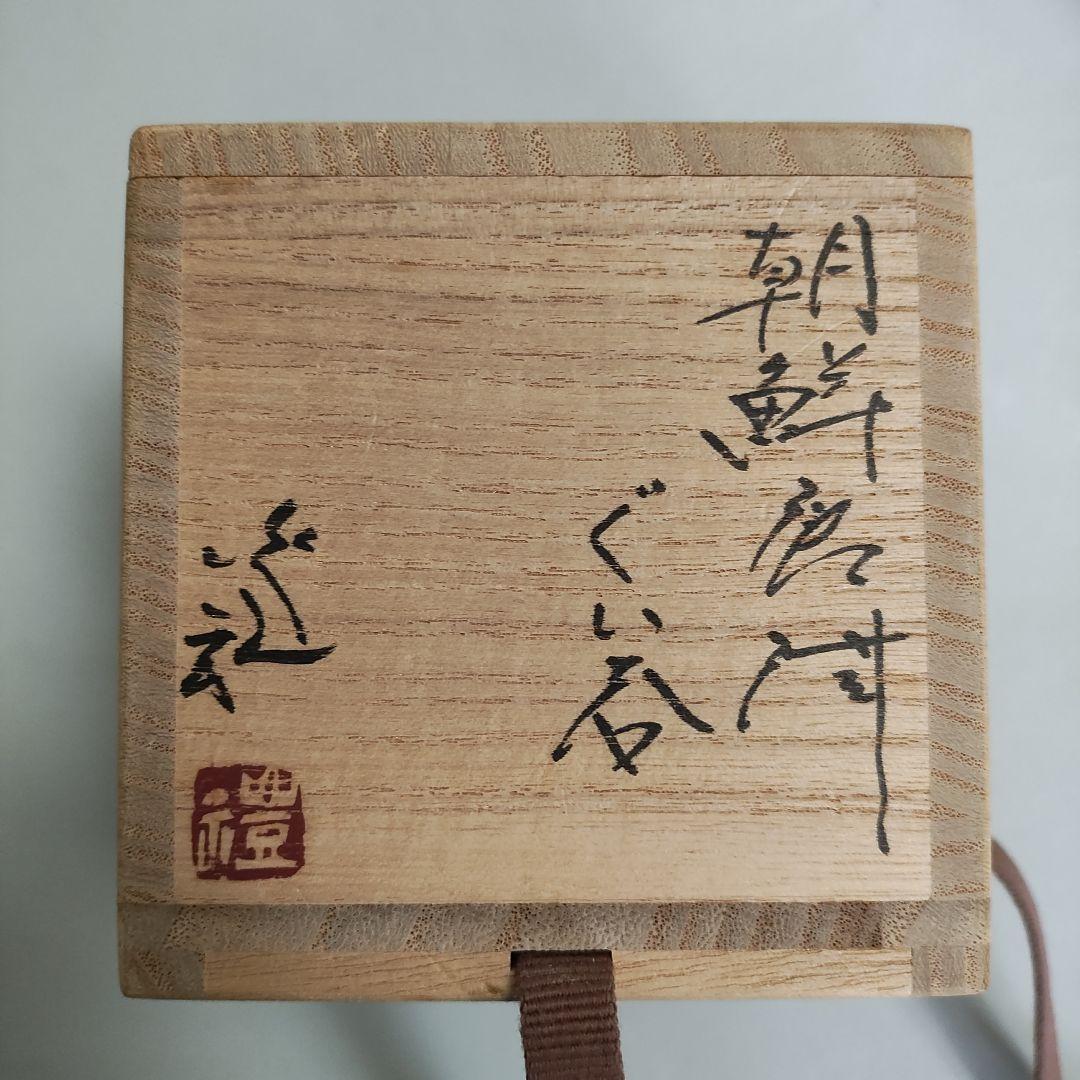 朝鮮唐津
ぐい呑
礼
禮